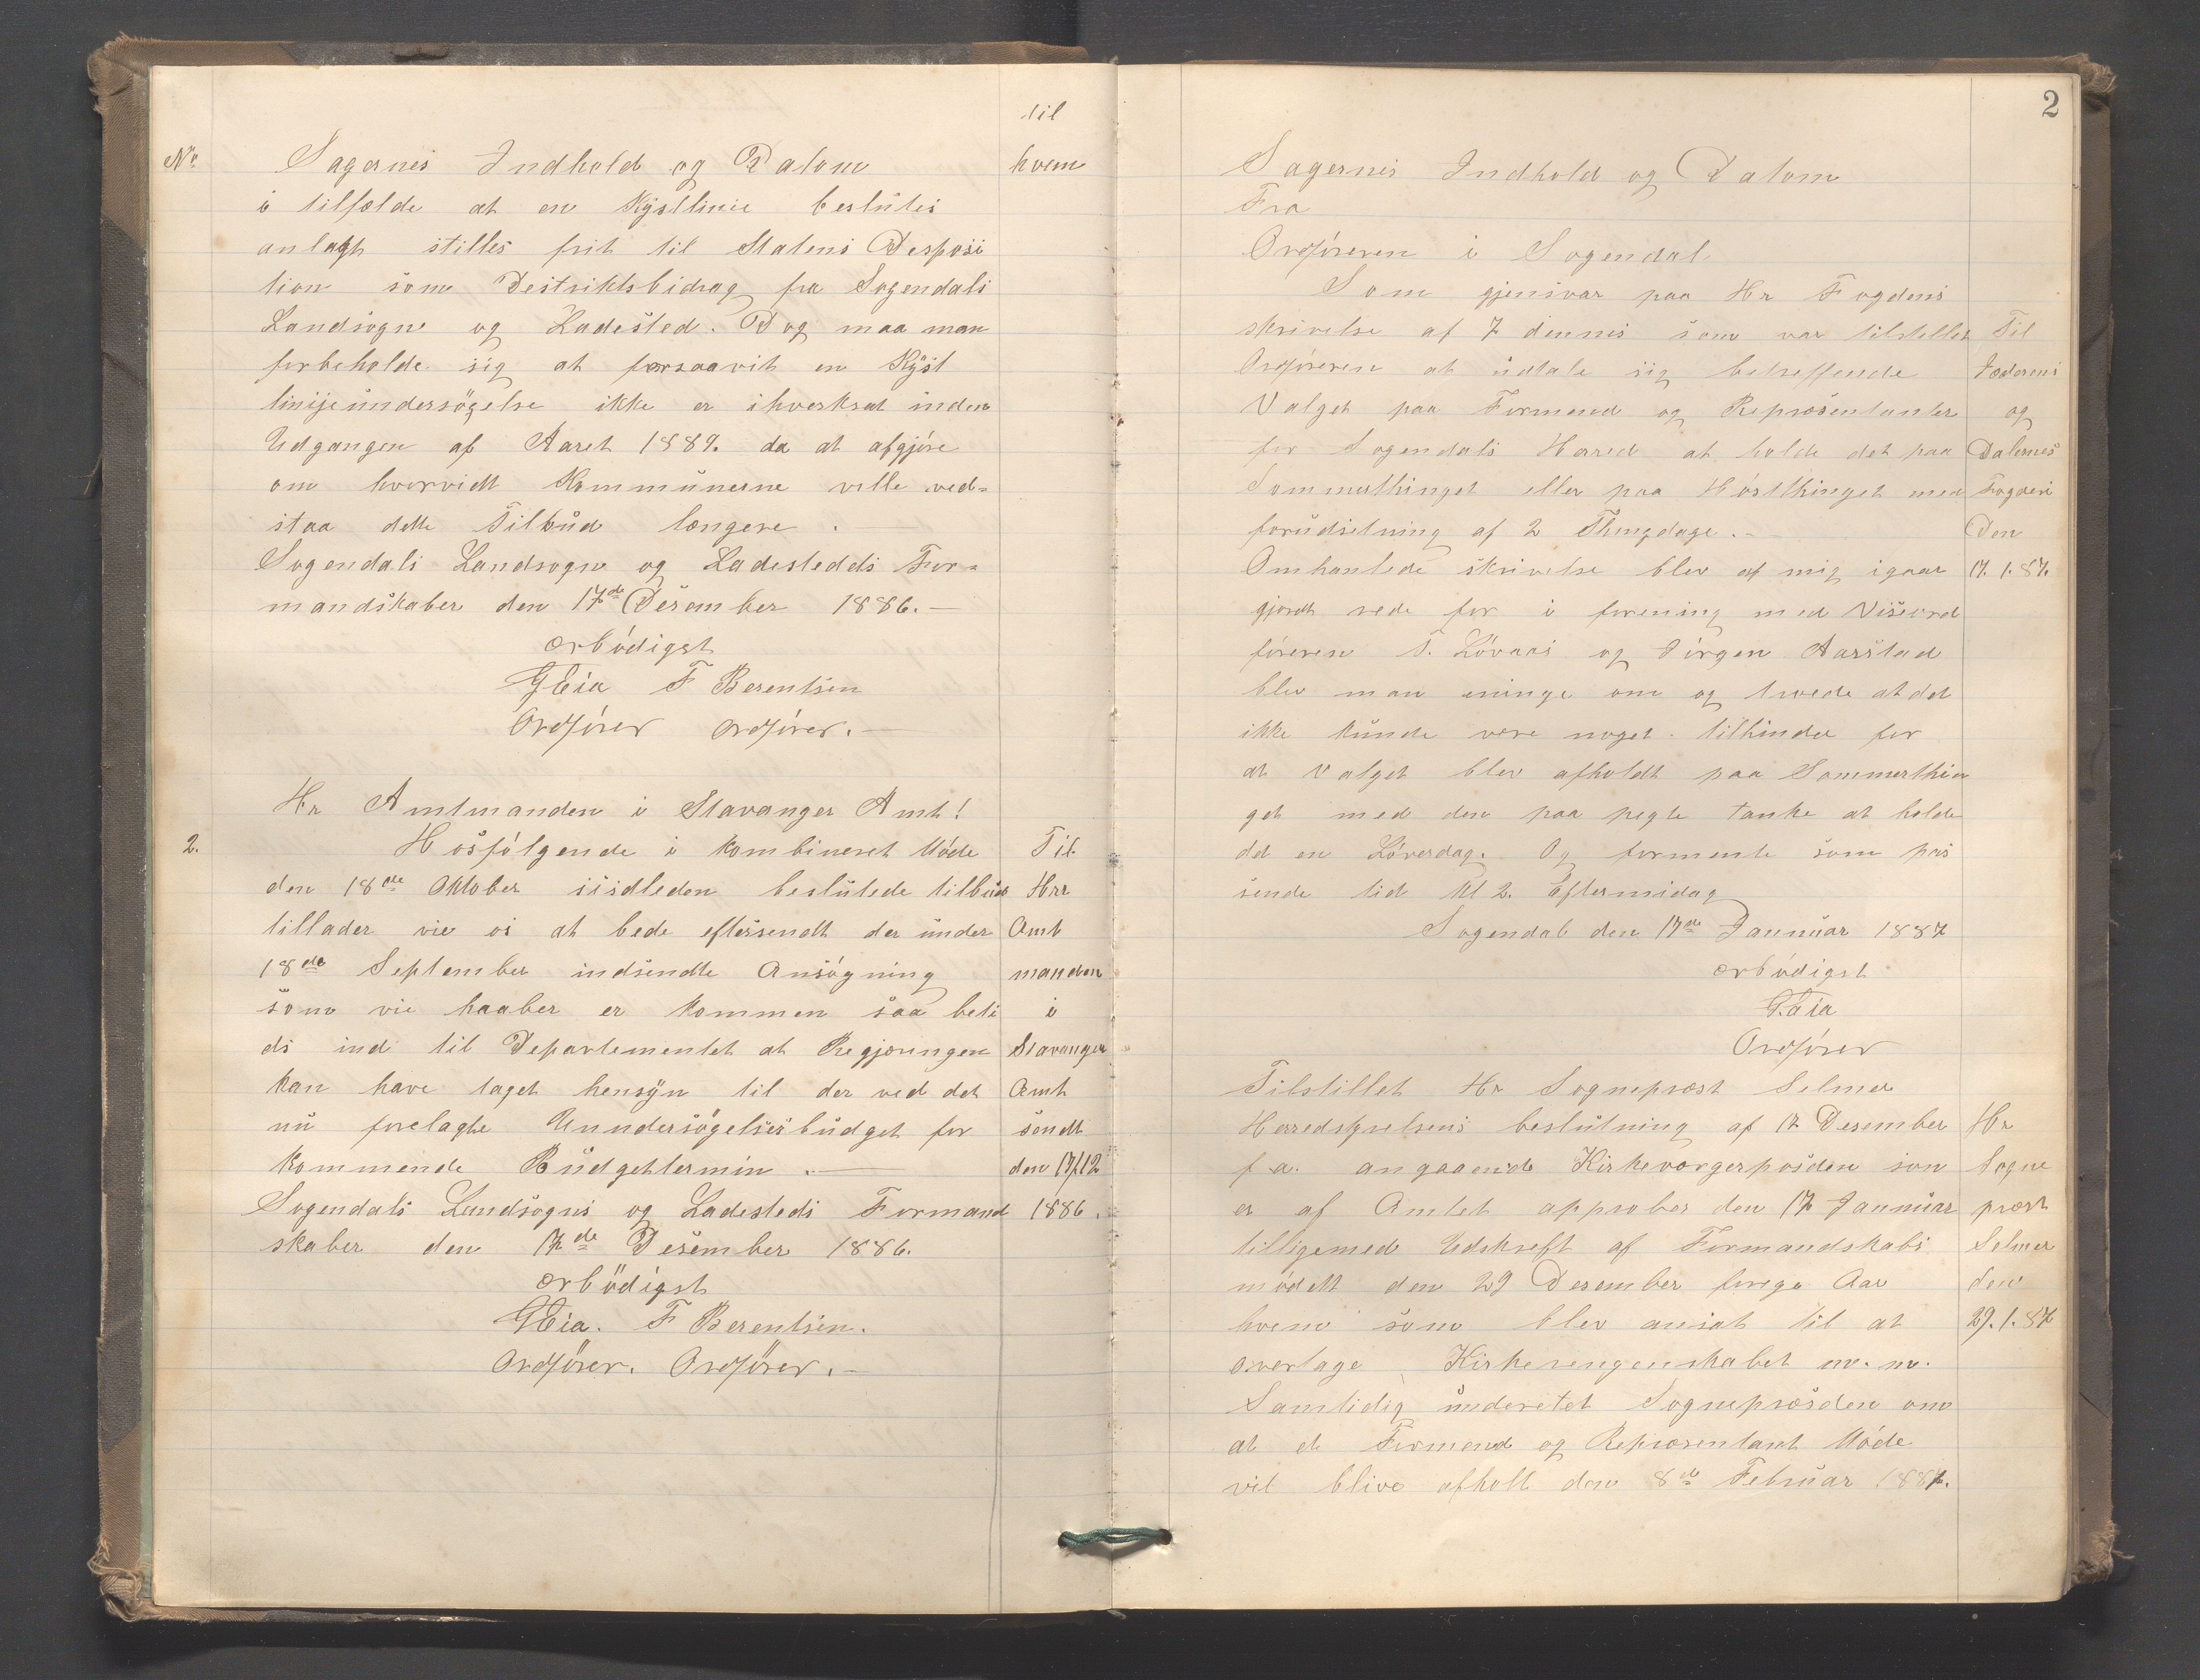 til
No Sagernes Indhold og Datom hvem
i tilfælde at en Kystlinie beslutes
anlagt stilles frit til Statens Desposi
tion som Destriktsbidrag fra Sogendals
Landsogne og Ladested. Dog maa man
forbeholde sig at forsaavit en Kyst
linijeundersögelse ikke er ihverksat inden
Udgangen af Aaret 1887. da at afgjöre
om hvorvidt Kommunerne ville ved=
staa dette Tilbud længere .—
Sogendals Landsogn og Ladestedds For=
mandskaber den 17de Desember 1886.—
ærbödigst
G Eia F Berentsen
Ordförer ordförer.—
Hr Amtmanden i Stavanger Amt!
2. Hosfölgende i kombineret Möde Til
den 18de Oktober sisidleden beslutede tilbud Hrr
tillader vie os at bede eftersendt der under Amt
18de September indsendte Ansögning manden
som vie haaber er kommen saa beti i
ds ind til Departementet at Regjeringen Stavanger
kan have taget hensyn til der ved det Amt
nu forelagte Unndersögelsesbudget for sendt
kommende Budgettermin .— den 17/12
Sogendals Landsogns og Ladesteds Formand 1886.
skaber den 17de Desember 1886.
ærbödigst
G Eia. F Berentsen.
Ordförer. Ordförer.—
2
Sagernes Indhold og Datom
Fra
Ordföreren i Sogendal
Som gjensvar paa Hr Fogdens
skrivelse af 7 dennes som var tilstellet Til
Ordföreren at udtale sig betreffende Jæderens
Valget paa Formend og Repræsentanter og
for Sogendals Herred at holde det paa Dalernes
Sommerthinget eller paa Hösthinget med Fogderi
forudsetning af 2 Thingdage .— Den
Omhanlede skrivelse blev af mig igaar 17. 1. 87.
gjordt rede for i forening med Viseord
föreren T. Lövaas og Jörgen Aarstad
blev man eninge om og troede at det
ikke kunde være noget tilhinder for
at Valget blev afholdt paa Sommerthin
get med den paa pegte tanke at holde
dd en Löverdag. Og formente som pas
sende tid Kl 2. Eftermidag
Sogendal den 17de Januar 1887
ærbödigst
G Eia
Ordförer
Tilstillet Hr Sogneprest Selmer
Herredstyrelsens beslutning af 17 Desember Hr
f a. angaaende Kirkeværgerposden som Sogne
er af Amtet approber den 17 Januar prest
tilligemed Udskreft af Formandskabs Selmer
mödett den 29 Desember forege Aar den
hvem som blev ansat til at 29. 1. 87
overtage Kirkerengenskabet m. m.
Samtidig underetet Sogneprosden om
at et Formend og Repræsentant Möde
vil blive afholt den 8de Februar 1887.